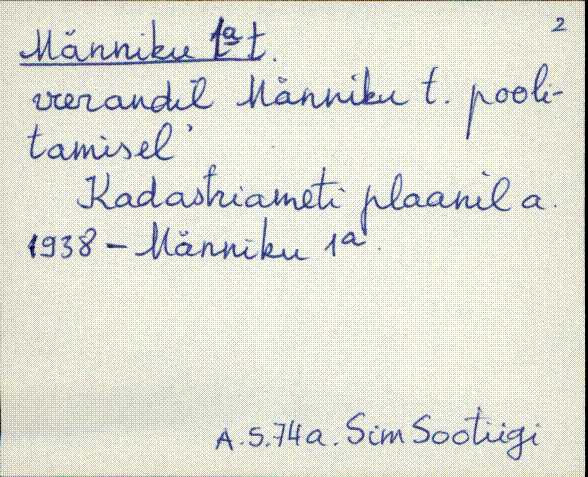 2
Männiku 1a t.
veerandil Männiku t. pooli-
tamisel
Kadastriameti plaanil a.
1938 - Männiku 1a.
A.S.74a. Sim Sootiigi